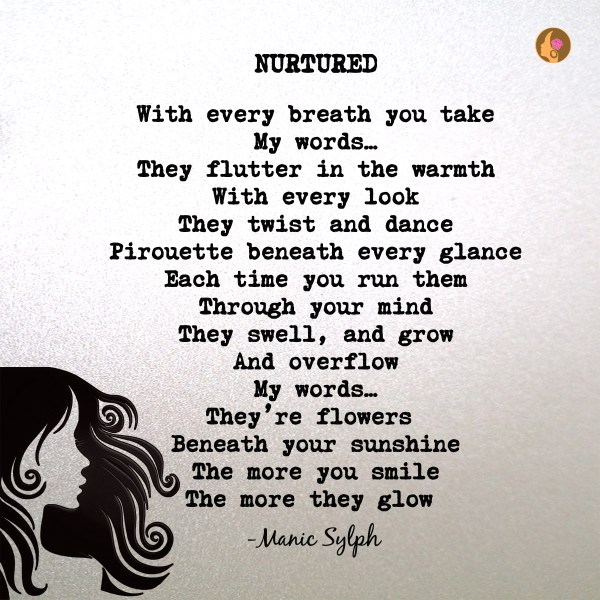 NURTURED
With every breath you take
My words…
They flutter in the warmth
With every look
They twist and dance
Pirouette beneath every glance
Each time you run them
Through your mind
They swell, and grow
And overflow
My words…
They’re flowers
Beneath your sunshine
The more you smile
The more they glow
-Manic Sylph